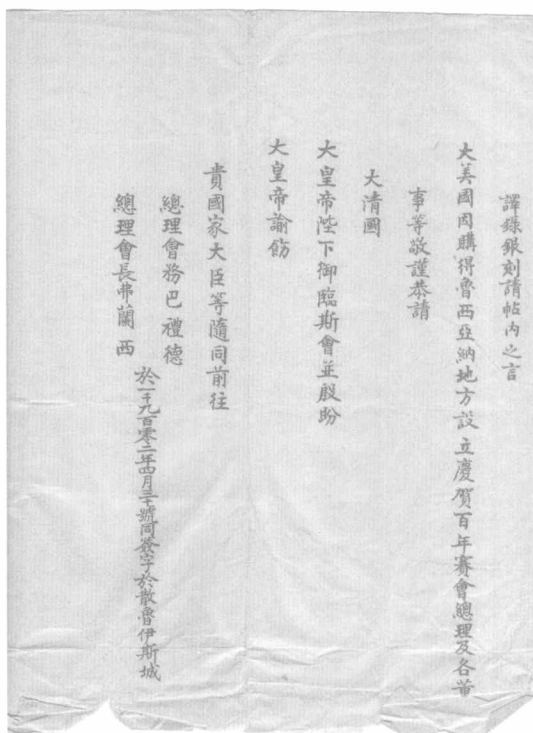 譯錄銀刻請帖内之言
大美國因購得魯西亞納地方設立慶賀百年賽會總理及各董
事等敬謹恭請
大清國
大皇帝陛下御臨斯會並殷盼
大皇帝諭飭
貴國家大臣等隨同前往
總理會務巴禮德
總理會長弗蘭西
於一千九百零二年四月三十號同簽字於散魯伊斯城